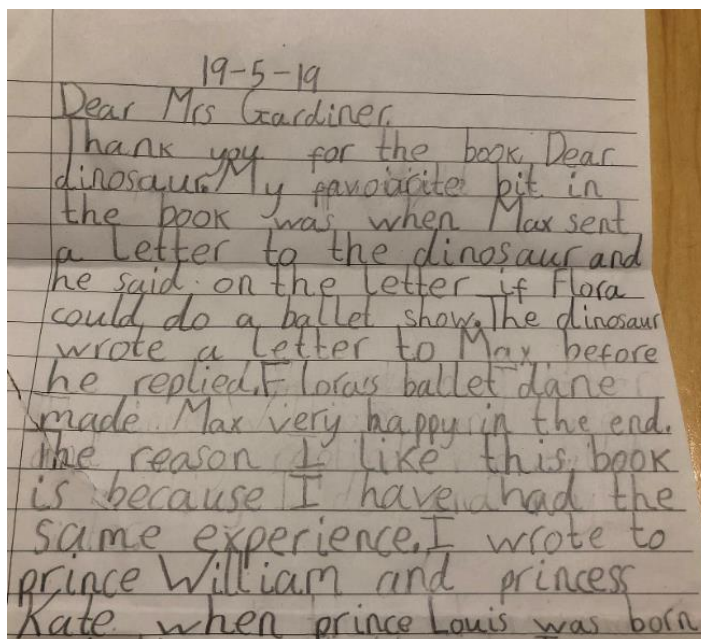 19-5-19
Dear Mrs Gardiner.
Thank you for the book Dear
dinosaur. My favouirite bit in
the book was when Max sent
a letter to the dinosaur and
he said on the letter if Flora
could do a ballet show. The dinosaur
wrote a letter to Max before
he replied. Flora's ballet dane
made Max very happy in the end.
The reason I like this book
is because I have had the
same experience. I wrote to
prince William and princess
Kate when prince Louis was born